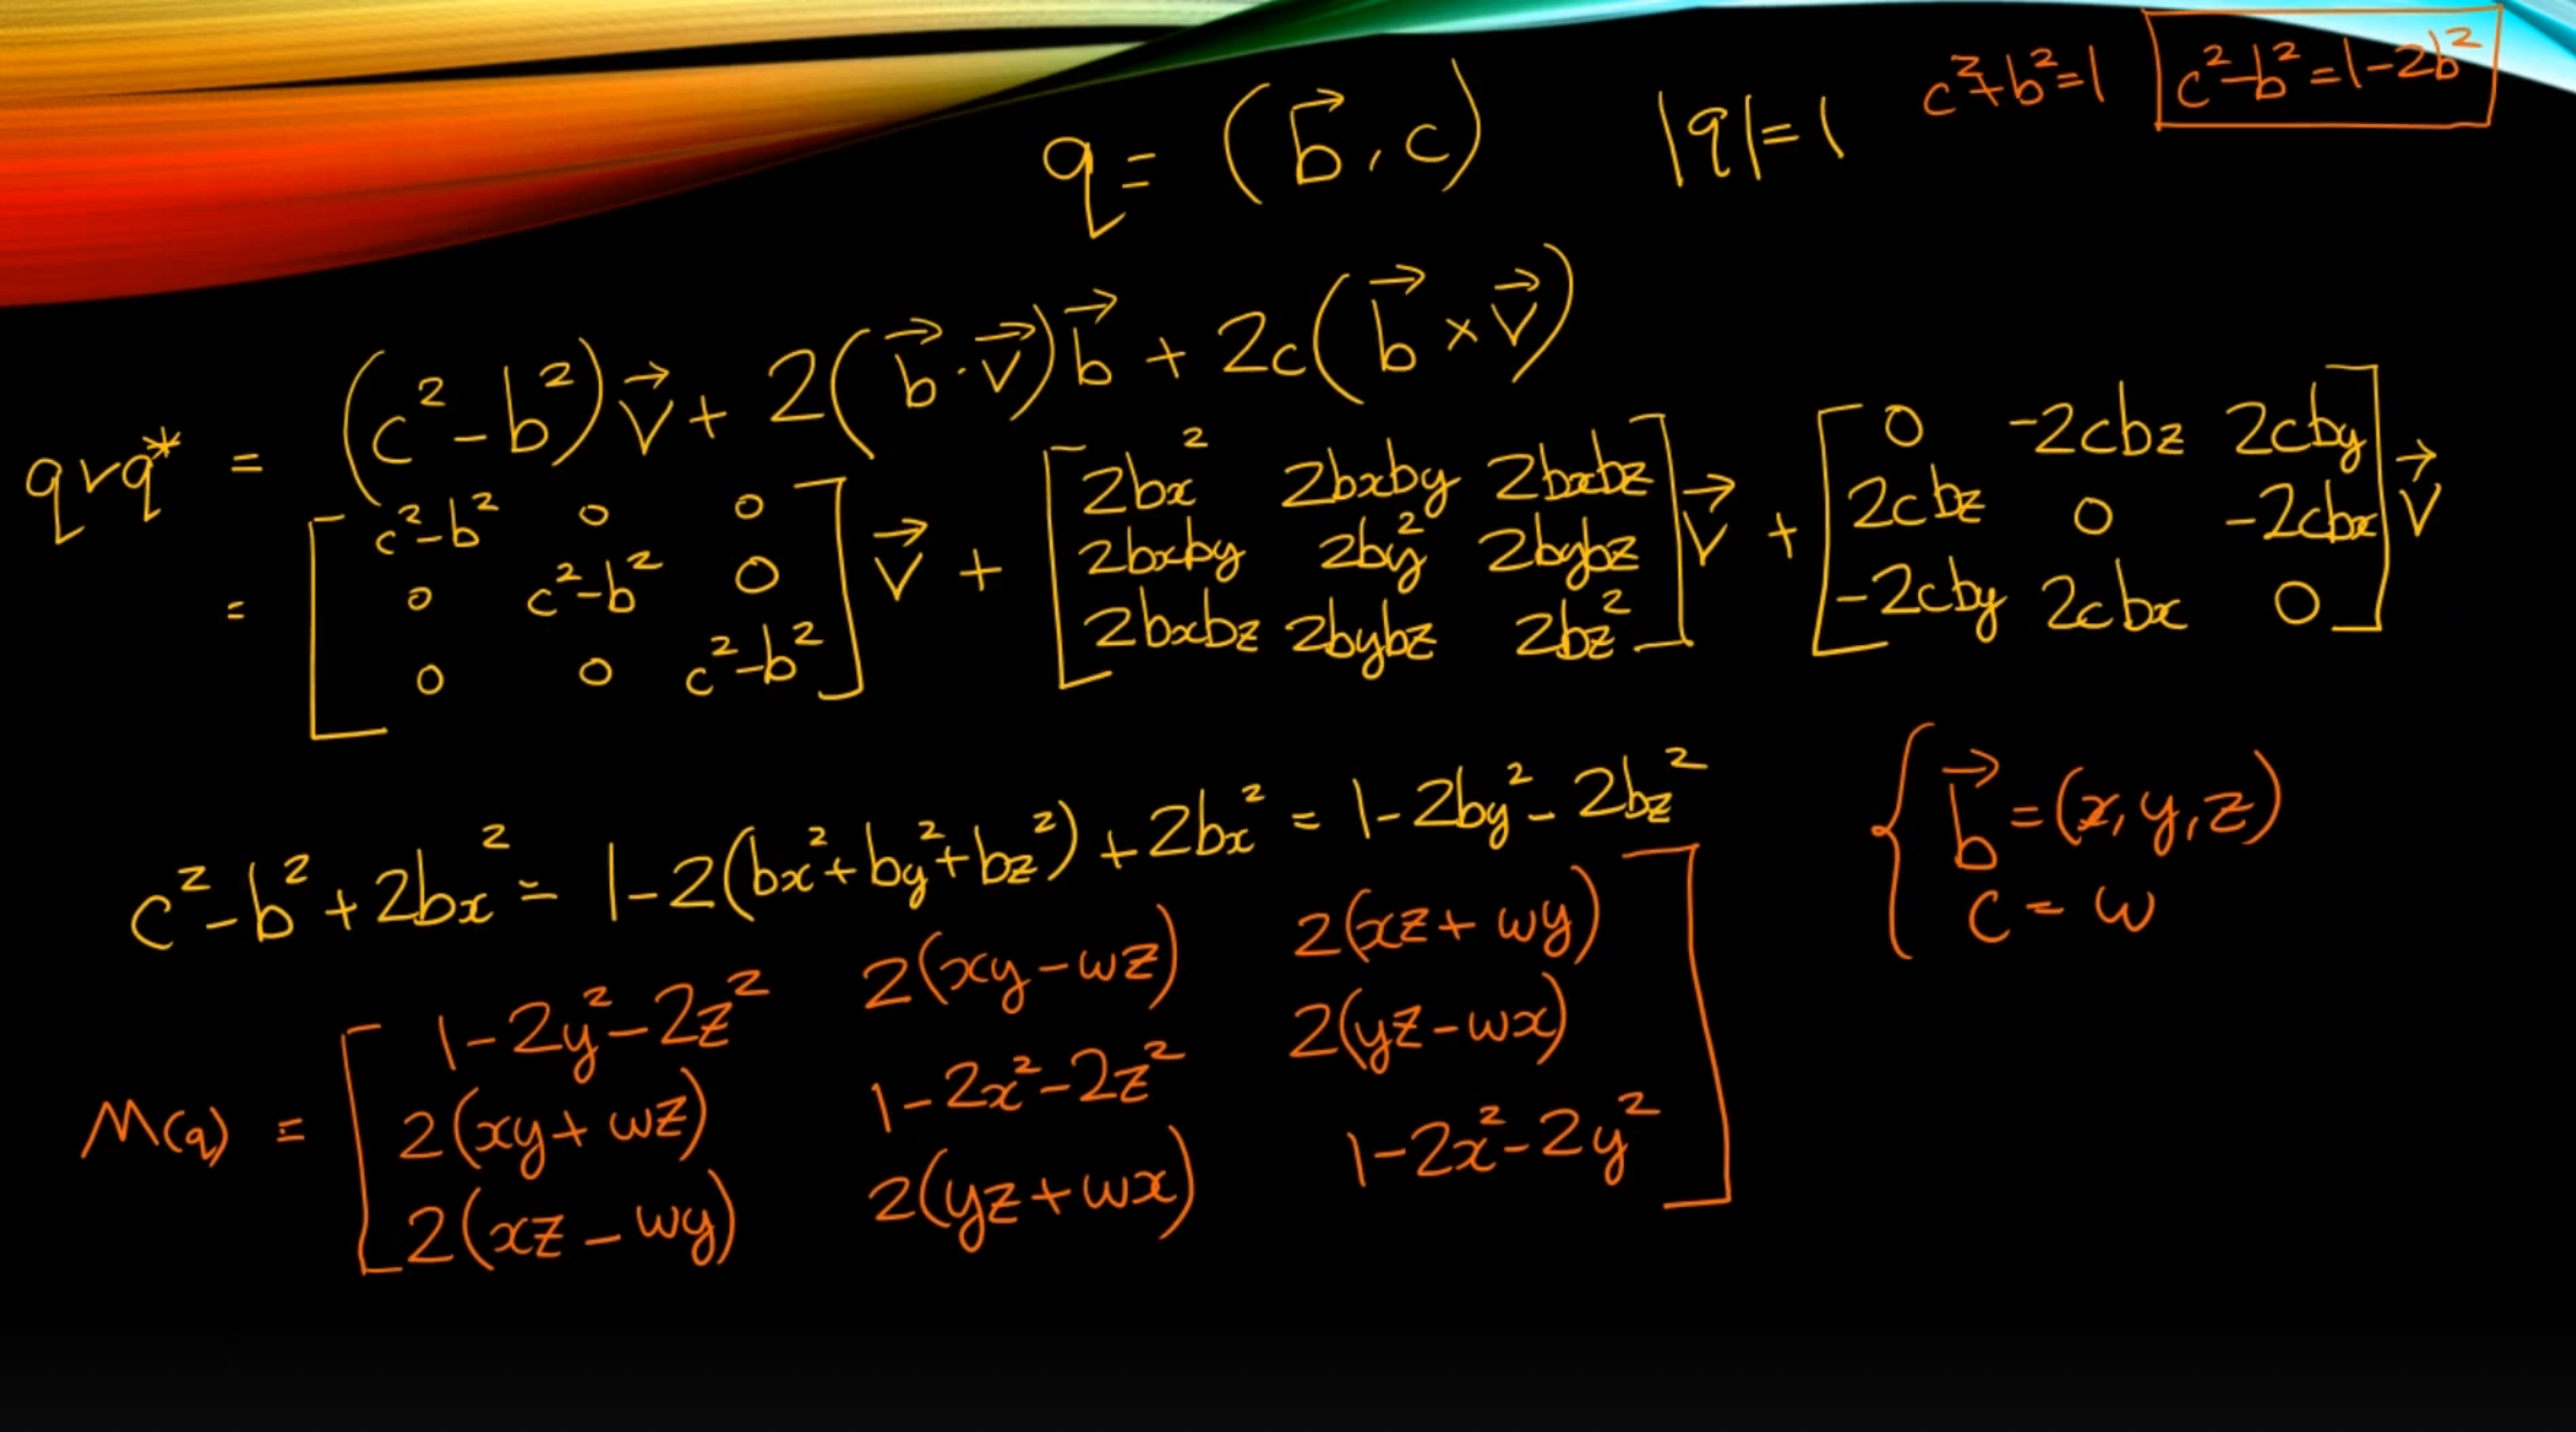 q = (b⃗, c)   |q| = 1   c²+b²=1   c²-b²=1-2b²
qvq* = (c²-b²)v⃗ + 2(b⃗·v⃗)b⃗ + 2c(b⃗×v⃗)
= [c²-b² 0 0; 0 c²-b² 0; 0 0 c²-b²] v⃗ + [2bx² 2bxby 2bxbz; 2bxby 2by² 2bybz; 2bxbz 2bybz 2bz²] v⃗ + [0 -2cbz 2cby; 2cbz 0 -2cbx; -2cby 2cbx 0] v⃗
c²-b²+2bx² = 1-2(bx²+by²+bz²)+2bx² = 1-2by²-2bz²
{ b⃗ = (x, y, z)
c = w
M(q) = [ 1-2y²-2z²   2(xy-wz)   2(xz+wy)
2(xy+wz)   1-2x²-2z²   2(yz-wx)
2(xz-wy)   2(yz+wx)   1-2x²-2y² ]